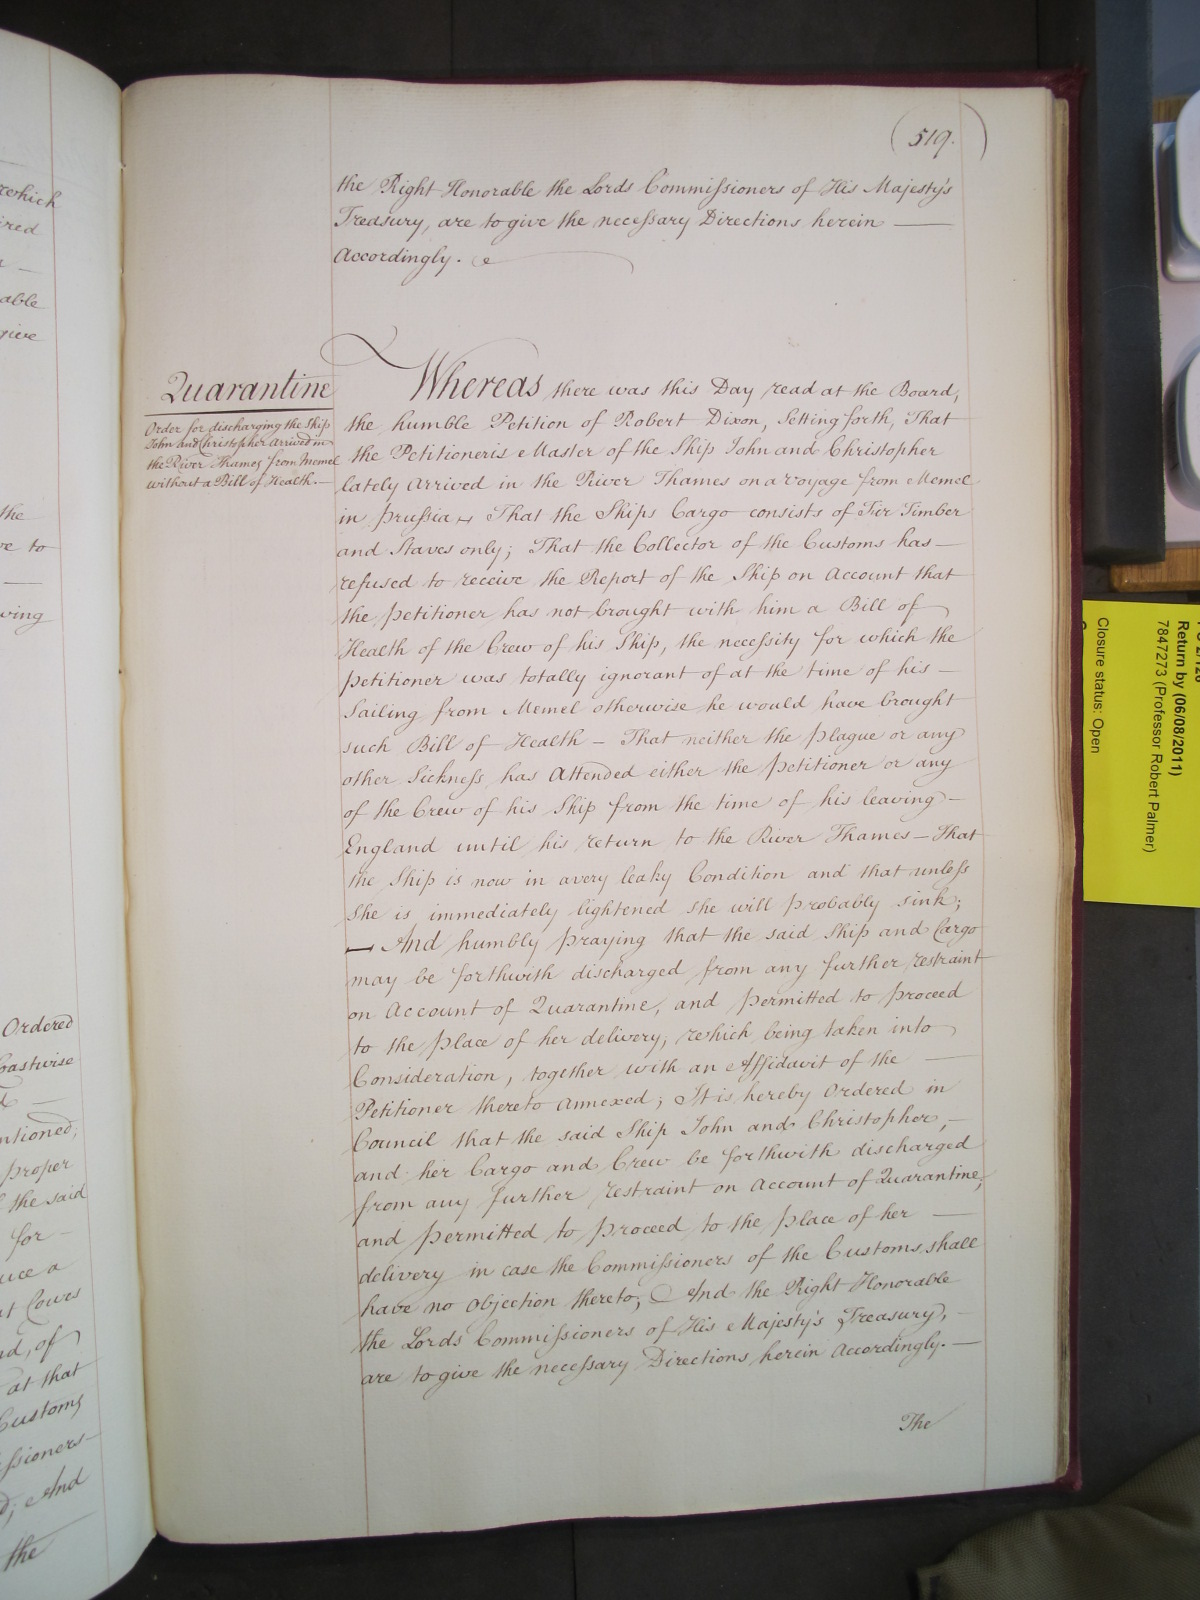 which
ired
able
give
the
ve to
wing
Ordered
Coastwise
ntioned;
proper
the said
for
uce a
at Cowes
nd, of
at that
Customs
ssioners
And
the
(519.)
the Right Honorable the Lords Commissioners of His Majesty's
Treasury, are to give the necessary Directions herein —
Accordingly.
Quarantine
Order for discharging the Ship
John and Christopher arrived in
the River Thames from Memel
without a Bill of Health.—
Whereas there was this Day read at the Board,
the humble Petition of Robert Dixon, Setting forth, That
the Petitioner is Master of the Ship John and Christopher
lately Arrived in the River Thames on a Voyage from Memel
in Prussia — That the Ships Cargo consists of Fir Timber
and Staves only; That the Collector of the Customs has —
refused to receive the Report of the Ship on Account that
the Petitioner has not brought with him a Bill of
Health of the Crew of his Ship, the necessity for which the
Petitioner was totally ignorant of at the time of his —
Sailing from Memel otherwise he would have brought
such Bill of Health — That neither the Plague or any
other Sickness has Attended either the Petitioner or any
of the Crew of his Ship from the time of his leaving —
England until his return to the River Thames — That
the Ship is now in a very leaky Condition and that unless
she is immediately lightened she will probably sink;
— And humbly praying that the said Ship and Cargo
may be forthwith discharged from any further restraint
on Account of Quarantine, and permitted to proceed
to the Place of her delivery; which being taken into
Consideration, together with an Affidavit of the —
Petitioner thereto Annexed; It is hereby Ordered in
Council that the said Ship John and Christopher, —
and her Cargo and Crew be forthwith discharged
from any further restraint on Account of Quarantine,
and permitted to proceed to the Place of her —
delivery in case the Commissioners of the Customs shall
have no Objection thereto; And the Right Honorable
the Lords Commissioners of His Majesty's Treasury, —
are to give the necessary Directions herein Accordingly. —
The
Return by (06/08/2011)
7847273 (Professor Robert Palmer)
Closure status: Open